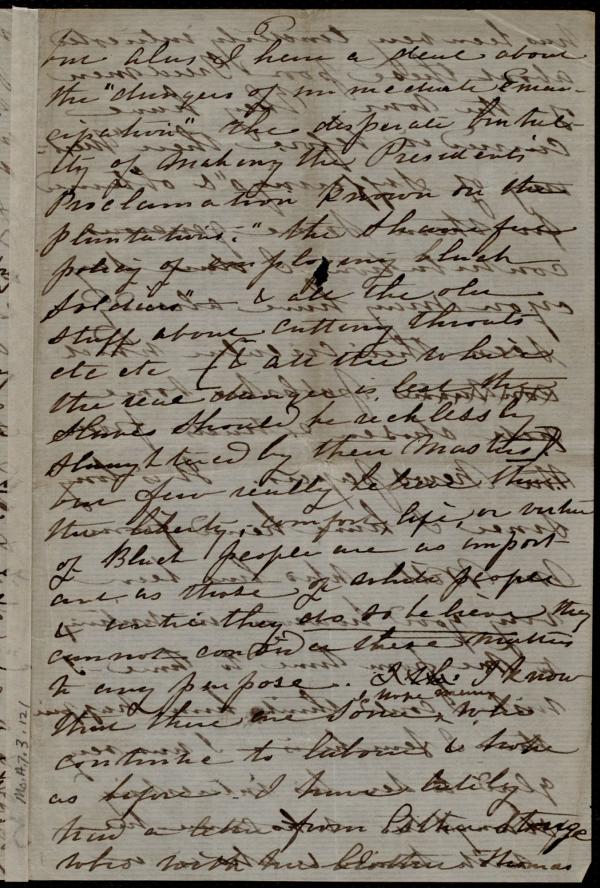 me alas I hear a deal about
the "dangers of immediate Eman-
cipation" the desperate
of making the Presidents
Proclamation known on the
plantations." the Shameful
policy of employing black
Soldiers" & all the old
stuff about cutting throats
etc etc (& all the while
the real danger is, lest the
Slaves Should be recklessly
Slaughtered by their Masters)
but few really believe that
the liberty, comfort, life, or virtue
of Black people are as import-
ant as those of white people
& until they do so believe they
cannot consider these matters
to any purpose. I know
that there are Some, who
continue to labour & hope
as before. I have lately
had a letter from Esther Sturge
who with her brother Thomas
Ms.A.7.3.121